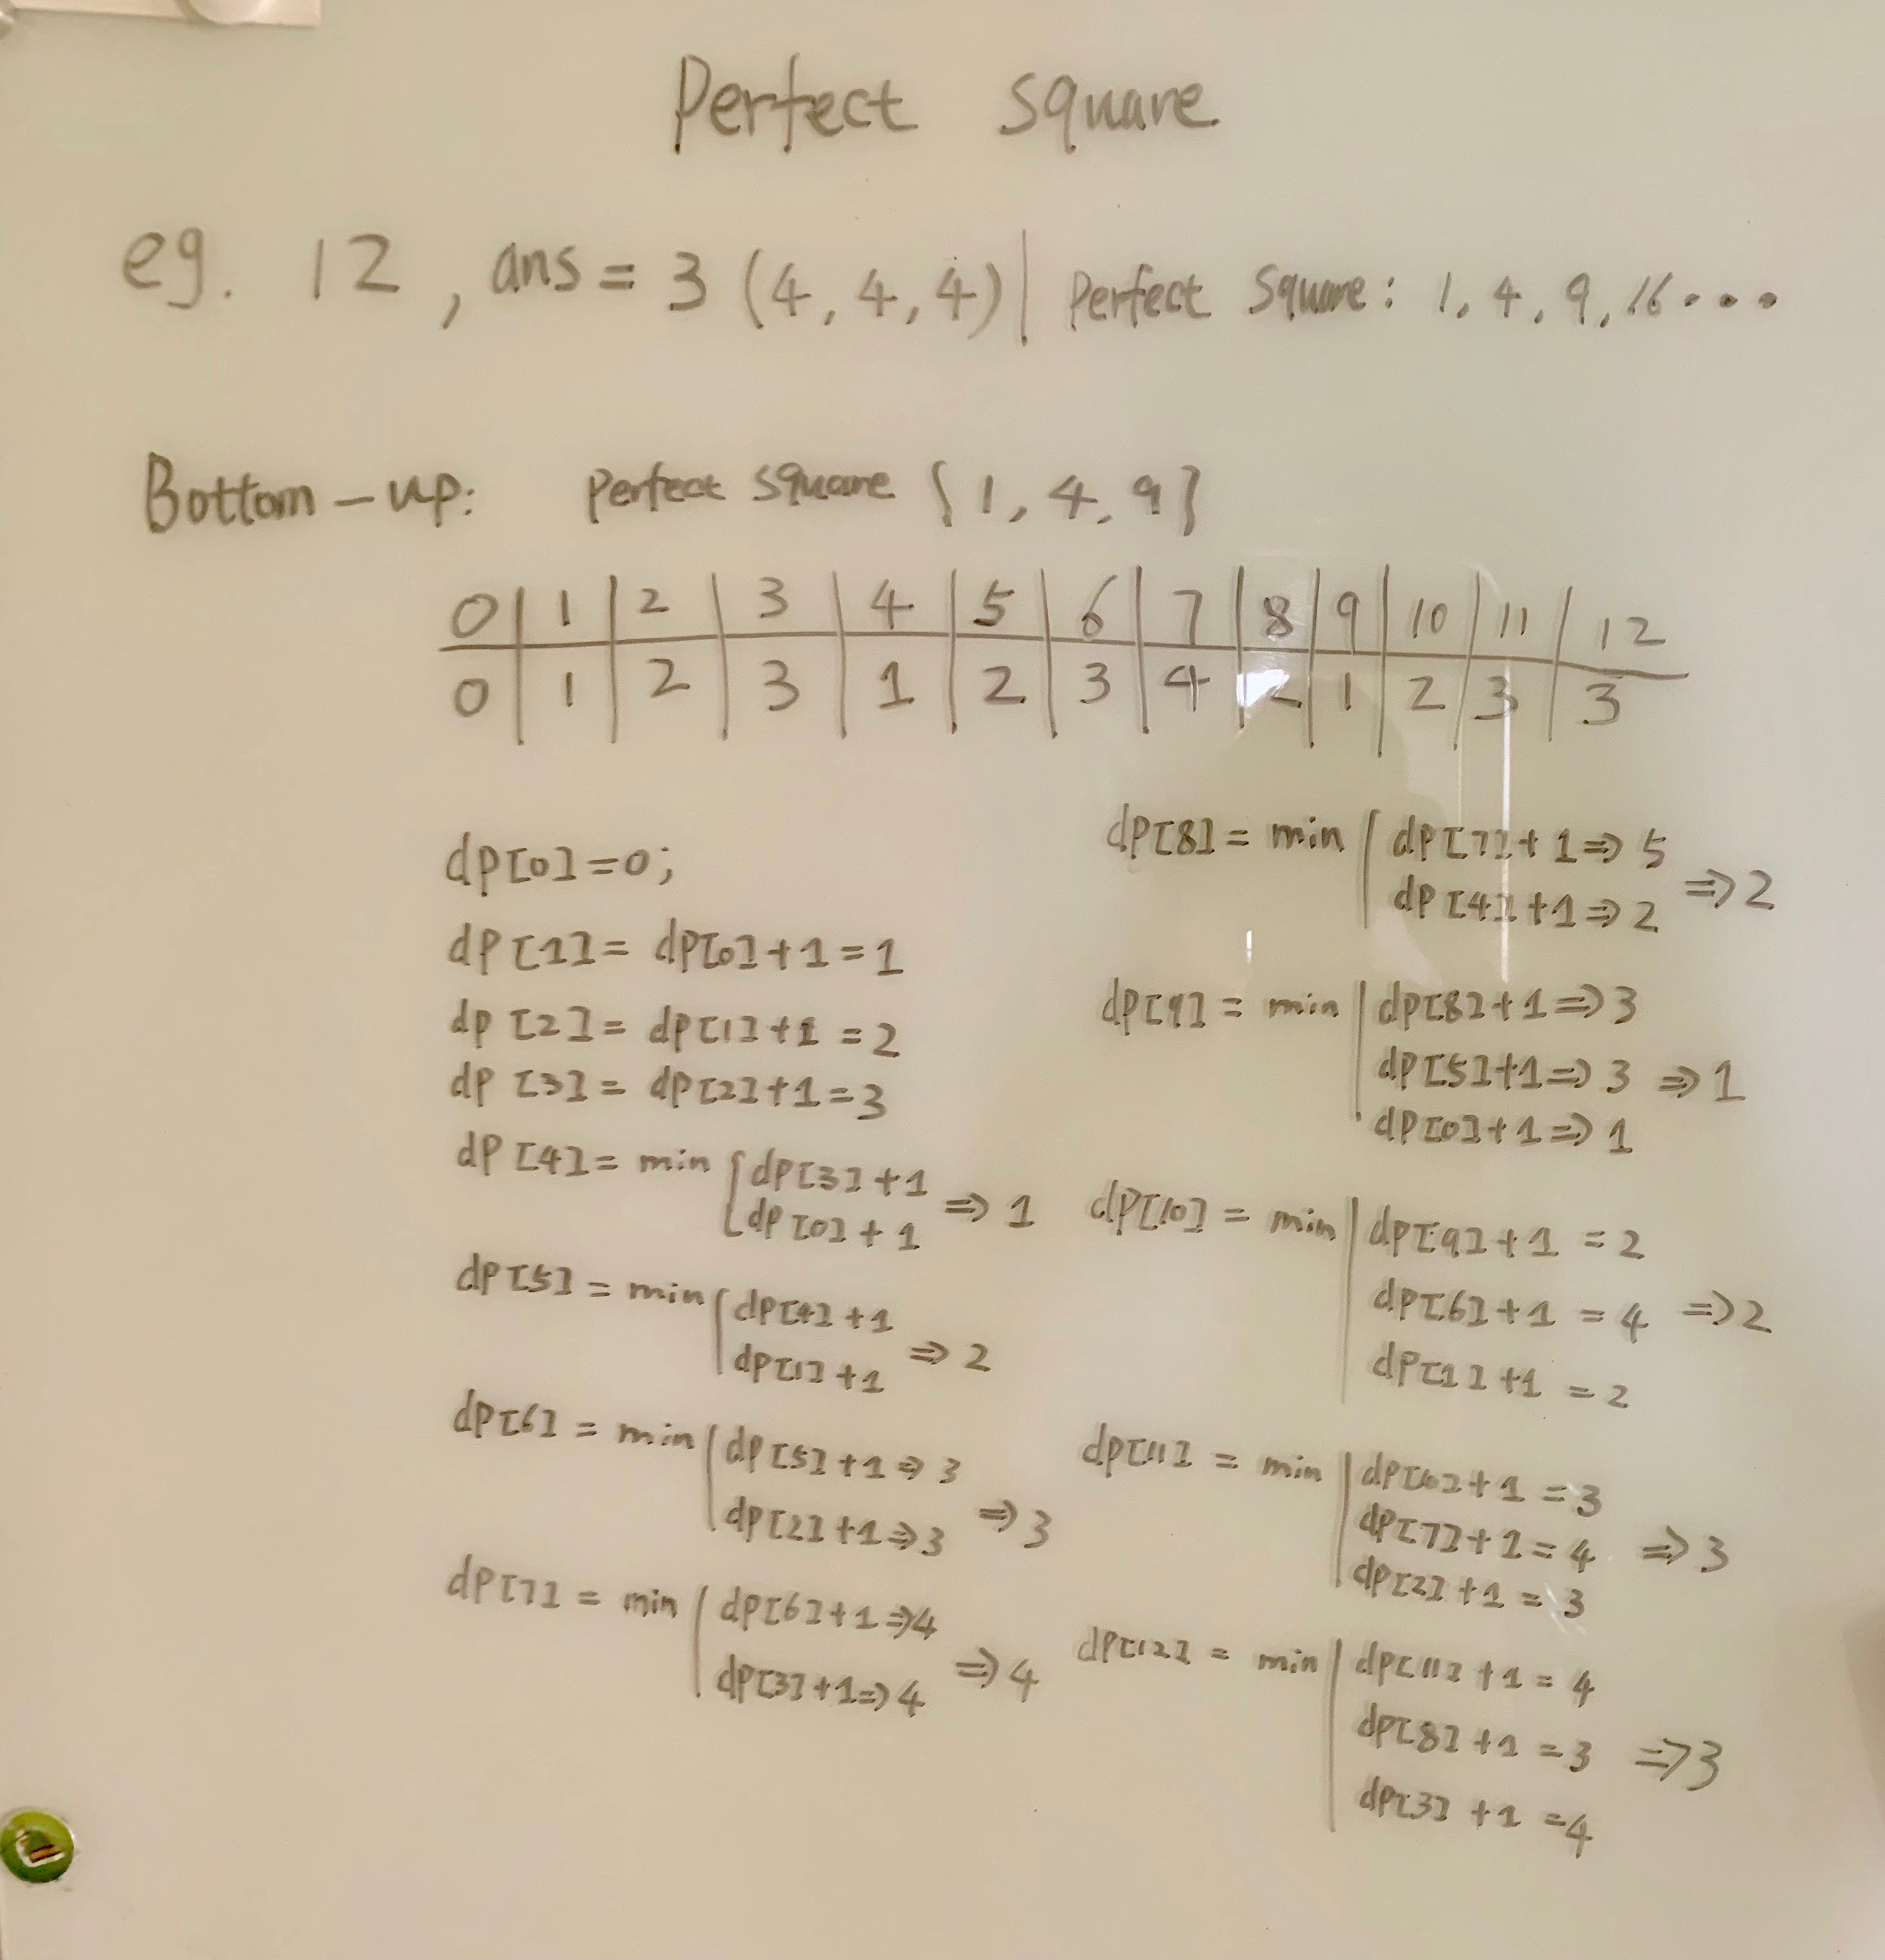 Perfect square
eg. 12, ans = 3 (4, 4, 4) | Perfect Square: 1, 4, 9, 16...
Bottom-up: Perfect square {1, 4, 9}
0 | 1 | 2 | 3 | 4 | 5 | 6 | 7 | 8 | 9 | 10 | 11 | 12
0 | 1 | 2 | 3 | 1 | 2 | 3 | 4 | 2 | 1 | 2 | 3 | 3
dp[0]=0;
dp[1]= dp[0]+1=1
dp[2]= dp[1]+1=2
dp[3]= dp[2]+1=3
dp[4]= min { dp[3]+1
dp[0]+1 => 1
dp[5] = min { dp[4]+1
dp[1]+1 => 2
dp[6] = min { dp[5]+1=>3
dp[2]+1=>3 => 3
dp[7] = min { dp[6]+1=>4
dp[3]+1=>4 => 4
dp[8] = min { dp[7]+1=>5
dp[4]+1=>2 => 2
dp[9] = min | dp[8]+1=>3
dp[5]+1=>3 => 1
dp[0]+1=>1
dp[10] = min | dp[9]+1 = 2
dp[6]+1 = 4 => 2
dp[1]+1 = 2
dp[11] = min | dp[10]+1 = 3
dp[7]+1 = 4 => 3
dp[2]+1 = 3
dp[12] = min | dp[11]+1 = 4
dp[8]+1 = 3 => 3
dp[3]+1 = 4